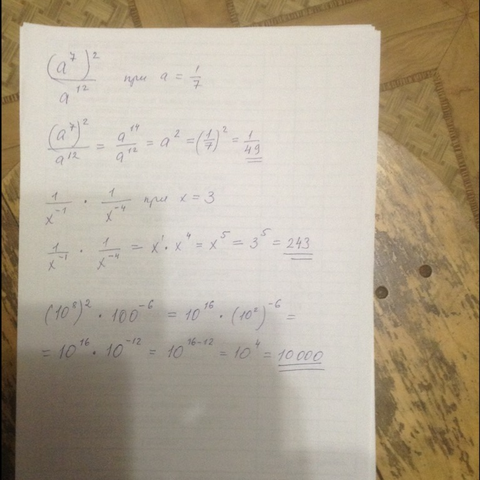 (a⁷)²/a¹² при a = 1/7
(a⁷)²/a¹² = a¹⁴/a¹² = a² = (1/7)² = 1/49
1/x⁻¹ · 1/x⁻⁴ при x = 3
1/x⁻¹ · 1/x⁻⁴ = x¹ · x⁴ = x⁵ = 3⁵ = 243
(10⁸)² · 100⁻⁶ = 10¹⁶ · (10²)⁻⁶ =
= 10¹⁶ · 10⁻¹² = 10¹⁶⁻¹² = 10⁴ = 10000